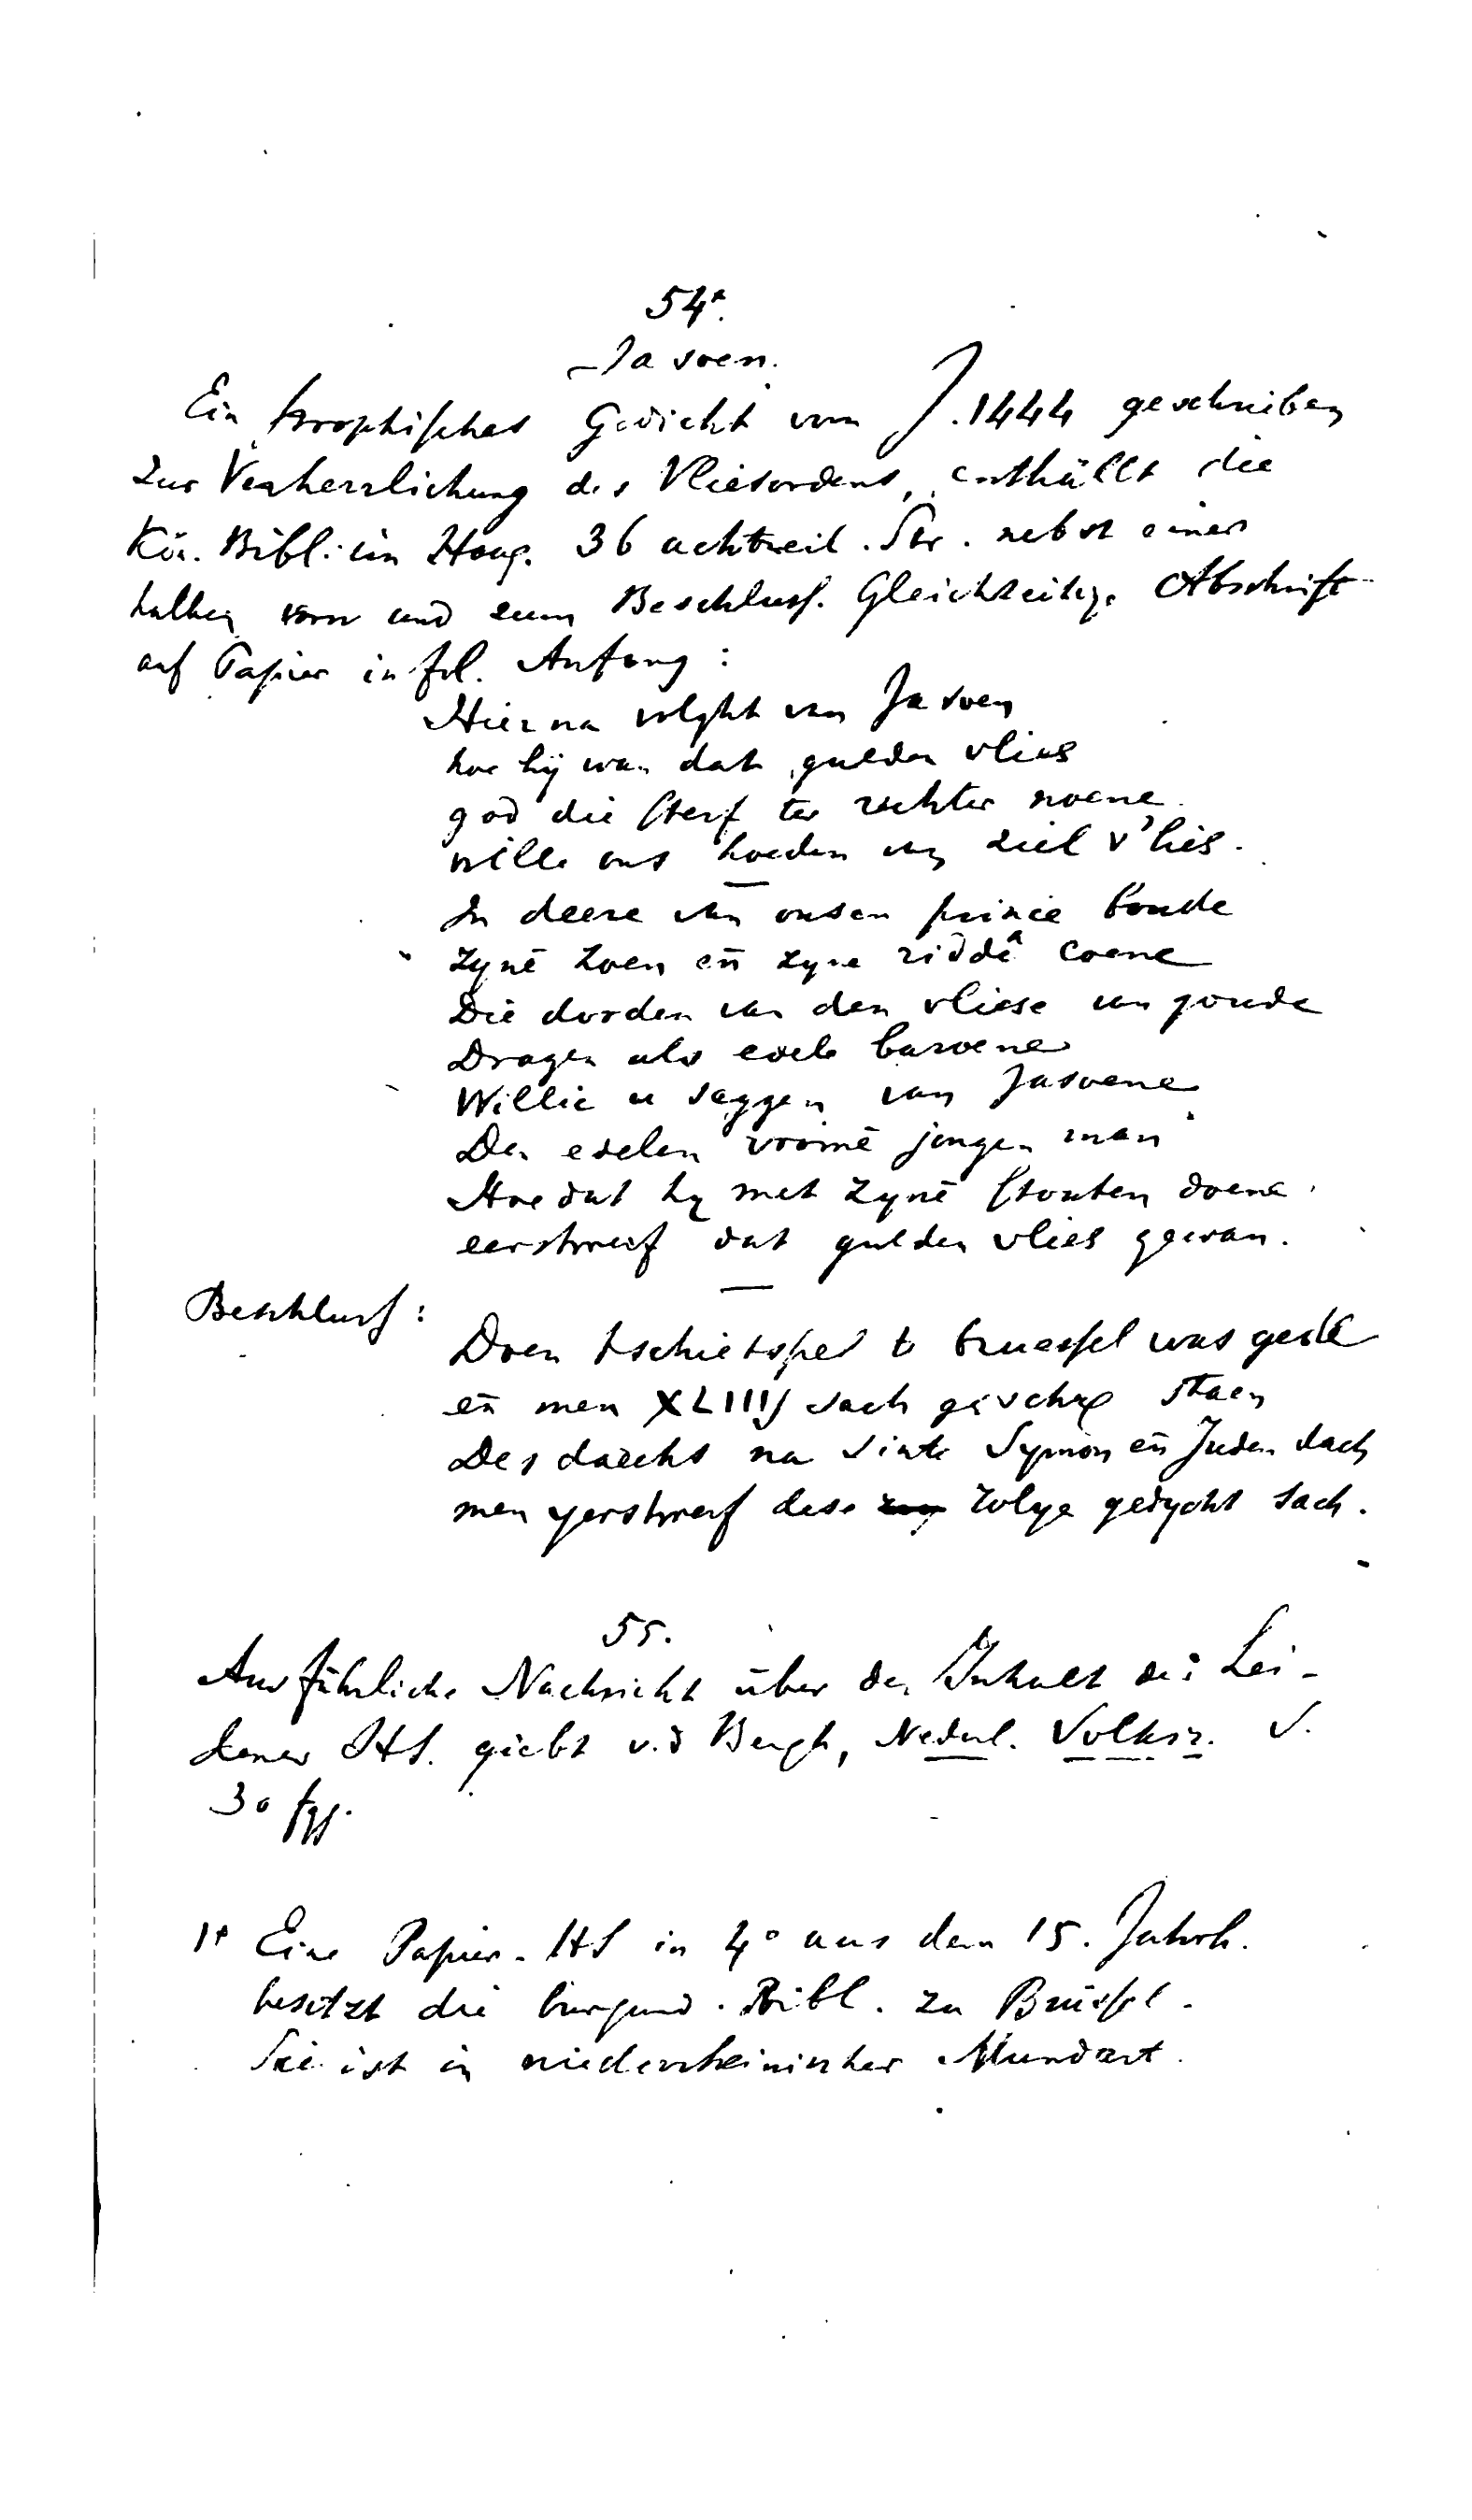 54*.
Jasoen.
Ein strophisches Gedicht vom J. 1444 geschrieben
zur Verherrlichung des Vliesordens, enthällt die
Kön. Bibl. im Haag. 36 achtzeil. Str. nebst einer
halben vorn und zum Beschluss. Gleichzeitige Abschrift
auf Papier in fol. Anfang:
Hierna volght van Jasoen
hoe hij wan dat gulden vlies
god die sterf ter rechter noene
wille ons hoeden van ziel v'lies.
In deere van onsen prince boude
zynē zoen eñ zyne ridd'e coene
Die dorden van den vliese van goude
Dragen als edele baroene
Willic u seggen van Jasoene
Den edelen vromē jongen man
Hoe dat hy met zynē stouten doene
eerstwerf dat gulden vlies gewan.
Beschluss:
Doen tschietspel te bruessel was
eñ men XLIIIJ sach staen
Des daechs na sinte Symon eñ Juden dach
men yerstwerf dese rolge gedycht sach.
55.
Ausführliche Nachricht über den Inhalt der Lei-
dener HS. giebt v.d Bergh, Nederl. Volksr. S.
30 fgg.
1* Eine Papier-HS in 4° aus dem 15. Jahrh.
besitzt die burgund. Bibl. zu Brüssel.
Sie ist in niederrheinischer Mundart.